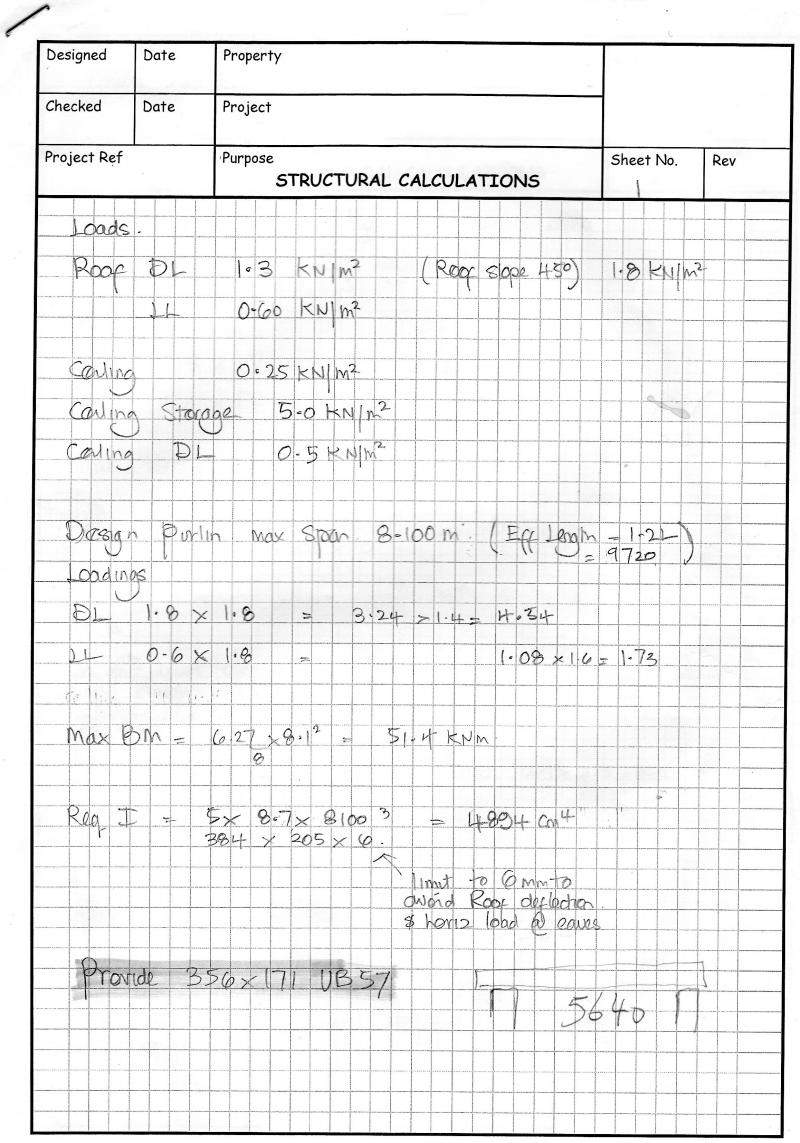 Designed Date Property
Checked Date Project
Project Ref Purpose Sheet No. Rev
STRUCTURAL CALCULATIONS 1
Loads.
Roof DL 1.3 KN/m² (Roof slope 45°) 1.8 KN/m²
LL 0.60 KN/m²
Ceiling 0.25 KN/m²
Ceiling Storage 5.0 KN/m²
Ceiling DL 0.5 KN/m²
Design Purlin max Span 8.100 m. (Eff Length = 1.2L
= 9720)
Loadings
DL 1.8 × 1.8 = 3.24 × 1.4 = 4.54
LL 0.6 × 1.8 = 1.08 × 1.6 = 1.73
Max BM = 6.27 × 8.1² = 51.4 KNm
8
Req I = 5 × 8.7 × 8100³ = 4894 cm⁴
384 × 205 × 6.
limit to 6mm to
avoid Roof deflection
& horiz load @ eaves
Provide 356 × 171 UB 57
5640